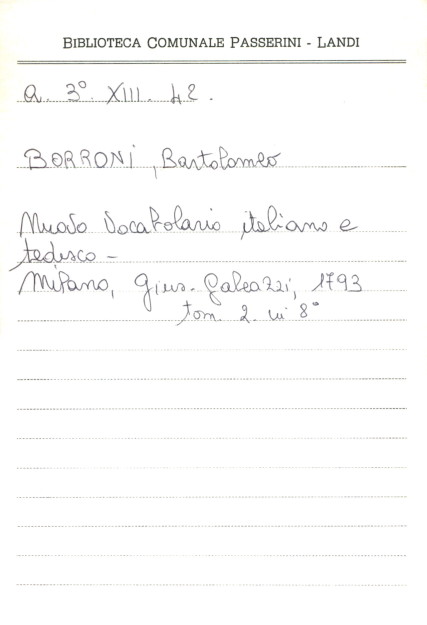 BIBLIOTECA COMUNALE PASSERINI - LANDI
a. 3° XIII. 42.
BORRONI, Bartolomeo
Nuovo Vocabolario italiano e
tedesco -
Milano, Gius. Galeazzi, 1793
tom. 2. in 8°